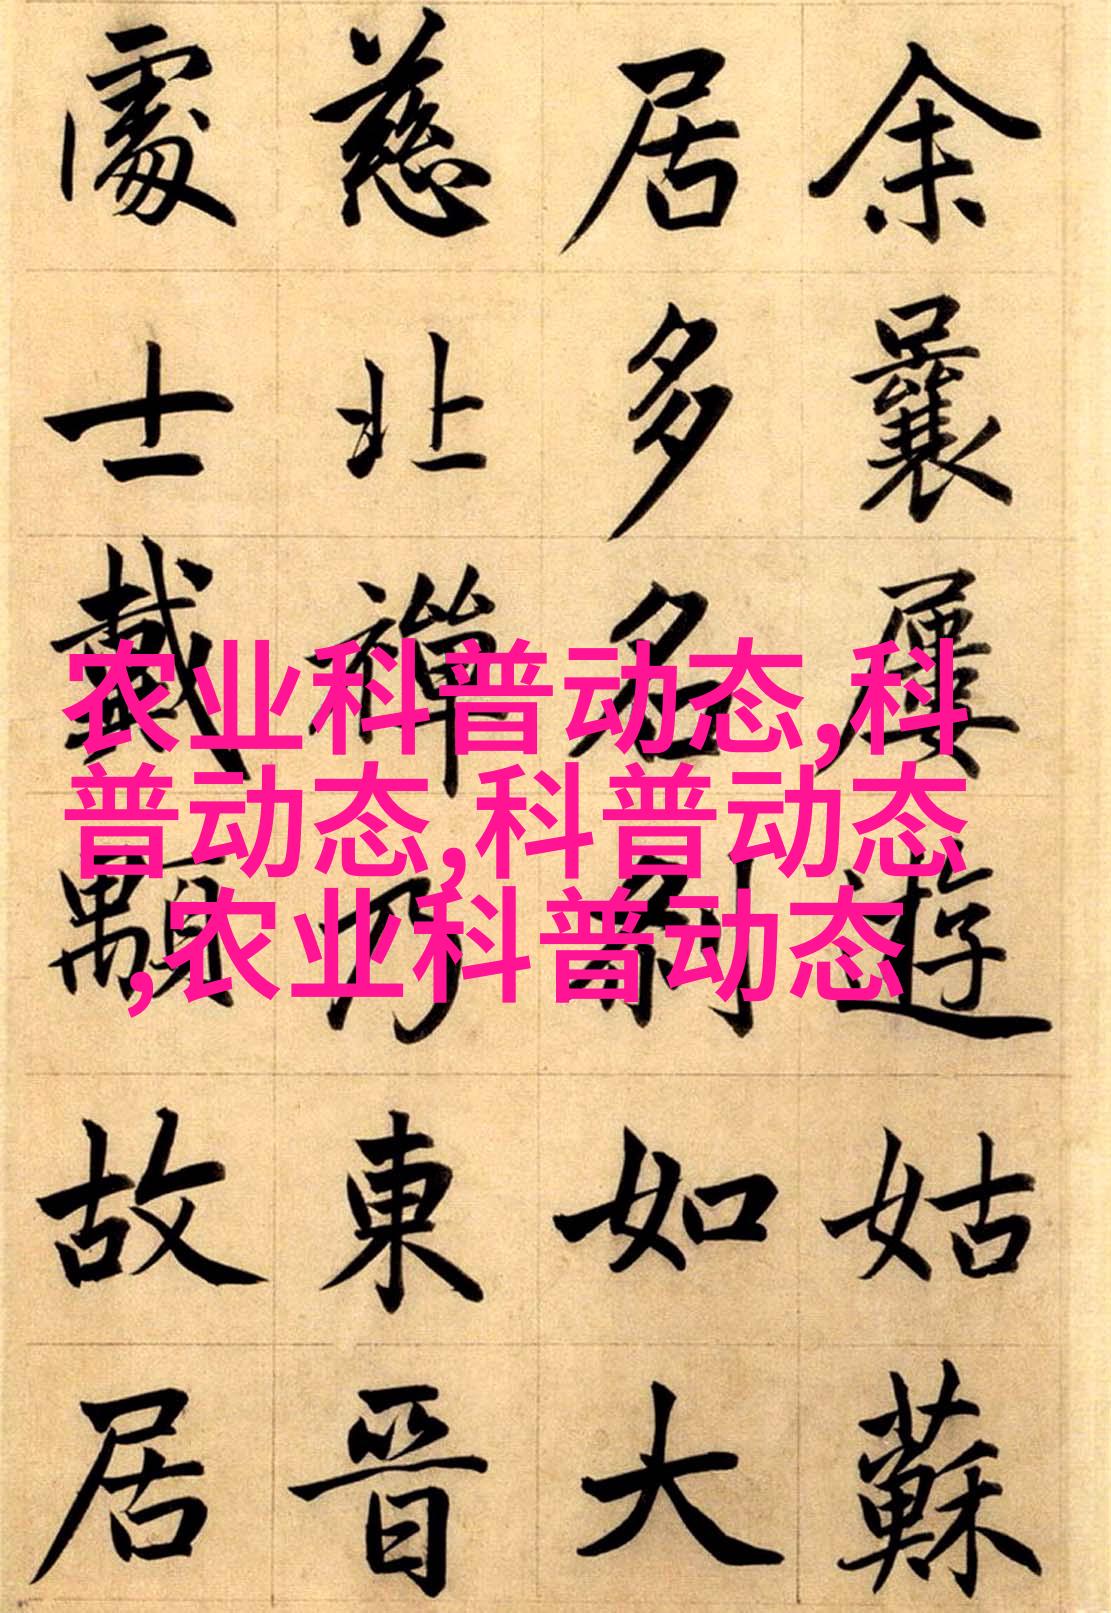 余曩屢遊姑蘇
居多名刹如大
慈北禪乃東晋
處士戴顒故居
农业科普动态,科
普动态,科普动态
,农业科普动态